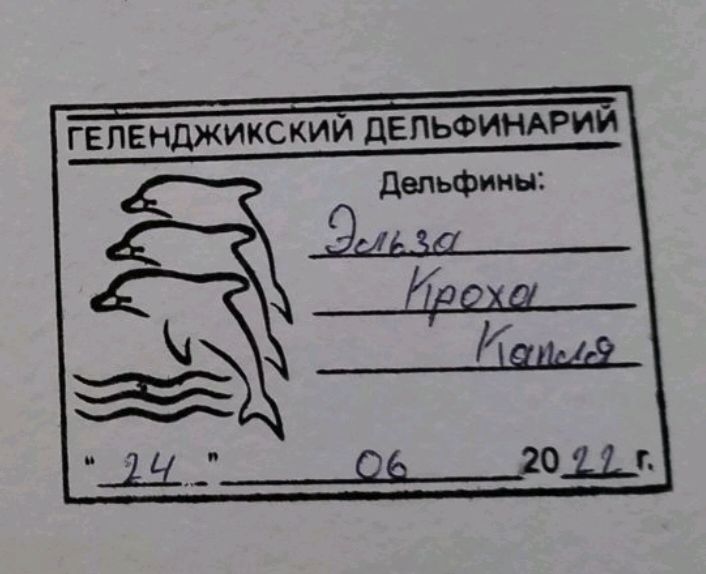 ГЕЛЕНДЖИКСКИЙ ДЕЛЬФИНАРИЙ
Дельфины:
Эльза
Кроха
Капля
" 24 " 06 20 22 г.